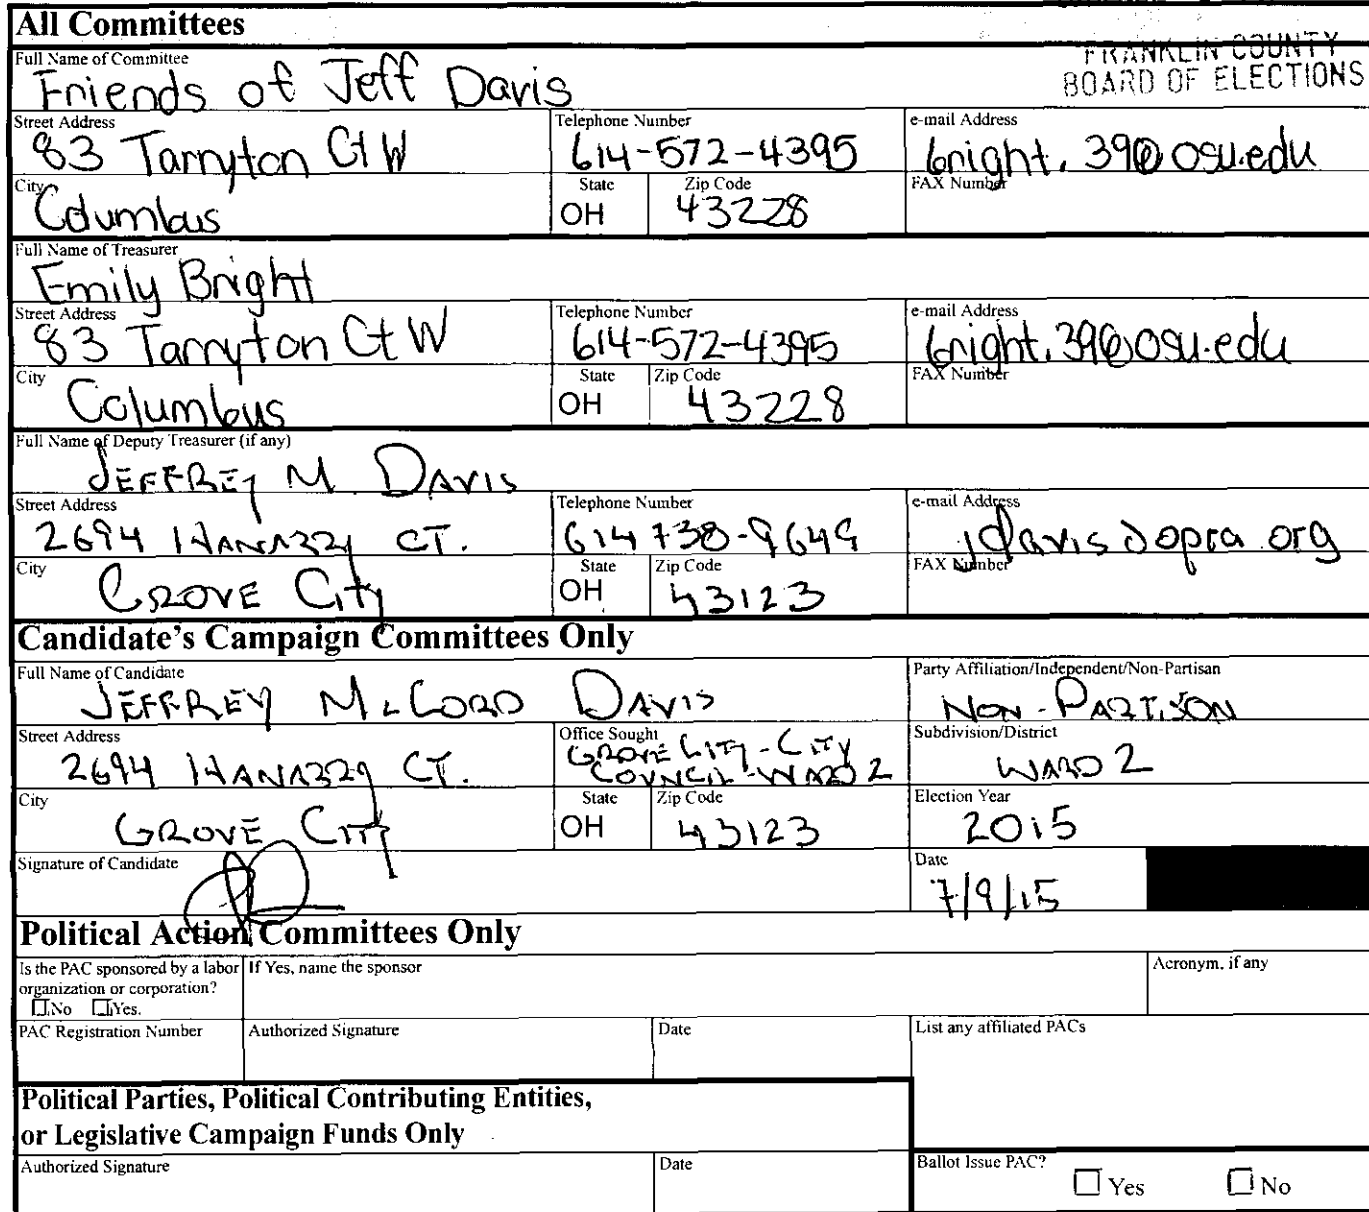 All Committees
FRANKLIN COUNTY
BOARD OF ELECTIONS
Full Name of Committee
Friends of Jeff Davis
Street Address
83 Tarryton Ct W
Telephone Number
614-572-4395
e-mail Address
bright.39@osu.edu
City
Columbus
State
OH
Zip Code
43228
FAX Number
Full Name of Treasurer
Emily Bright
Street Address
83 Tarryton Ct W
Telephone Number
614-572-4395
e-mail Address
bright.39@osu.edu
City
Columbus
State
OH
Zip Code
43228
FAX Number
Full Name of Deputy Treasurer (if any)
JEFFREY M. DAVIS
Street Address
2694 CT.
Telephone Number
614 738-9649
e-mail Address
jdavis@opra.org
City
GROVE City
State
OH
Zip Code
43123
FAX Number
Candidate's Campaign Committees Only
Full Name of Candidate
JEFFREY McCORD DAVIS
Party Affiliation/Independent/Non-Partisan
NON-PARTISON
Street Address
2694 CT.
Office Sought
GROVE CITY - CITY
COUNCIL - WARD 2
Subdivision/District
WARD 2
City
GROVE CITY
State
OH
Zip Code
43123
Election Year
2015
Signature of Candidate
Date
7/9/15
Political Action Committees Only
Is the PAC sponsored by a labor
organization or corporation?
No Yes.
If Yes, name the sponsor
Acronym, if any
PAC Registration Number
Authorized Signature
Date
List any affiliated PACs
Political Parties, Political Contributing Entities,
or Legislative Campaign Funds Only
Authorized Signature
Date
Ballot Issue PAC?
Yes No